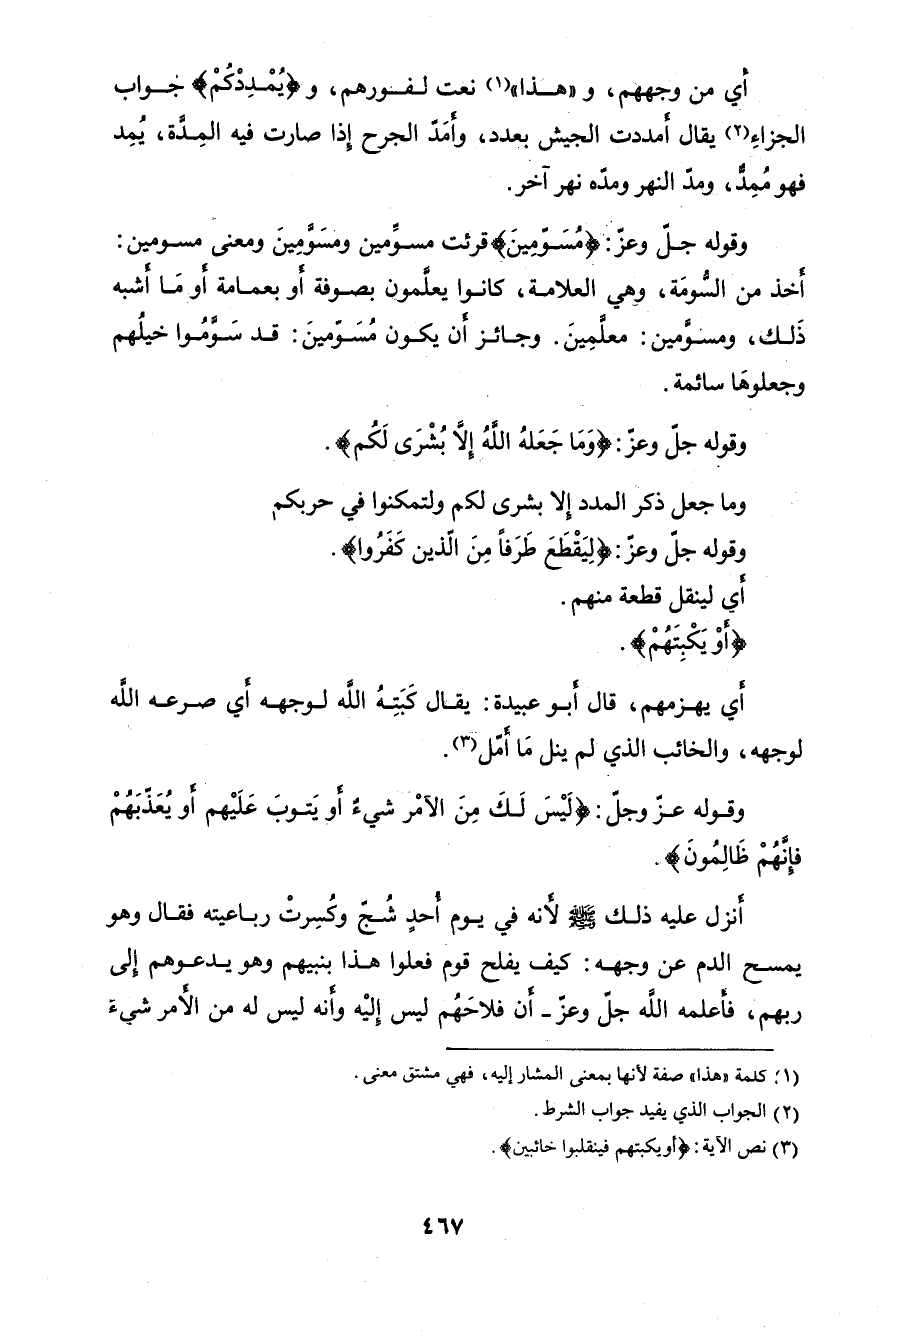 أي من وجههم، و «هذا»(١) نعت لفورهم، و ﴿يُمْدِدْكُمْ﴾ جواب
الجزاء(٢) يقال أمددت الجيش بعدد، وأَمَدّ الجرح إذا صارت فيه المِدَّة، يُمِد
فهو مُمِدٌّ، ومدّ النهر ومدّه نهر آخر.
وقوله جلّ وعزّ: ﴿مُسَوّمِينَ﴾ قرئت مسوِّمين ومسَوَّمِينَ ومعنى مسومين:
أخذ من السُّومَة، وهي العلامة، كانوا يعلَّمون بصوفة أو بعمامة أو مَا أشبه
ذَلك، ومسوَّمين: معلَّمِينَ. وجائز أن يكون مُسَوّمينَ: قد سَوَّمُوا خيلَهم
وجعلوهَا سائمة.
وقوله جلّ وعزّ: ﴿وَمَا جَعَلهُ اللَّهُ إلَّا بُشْرَى لَكُم﴾.
وما جعل ذكر المدد إلا بشرى لكم ولتمكنوا في حربكم
وقوله جلّ وعزّ: ﴿لِيَقْطَعَ طَرَفاً مِنَ الّذين كَفَرُوا﴾.
أي لينقل قطعة منهم.
﴿أَوْ يَكْبِتَهُمْ﴾.
أي يهزمهم، قال أبو عبيدة: يقال كَبَتِهُ اللَّه لوجهه أي صرعه اللَّه
لوجهه، والخائب الذي لم ينل مَا أَمّل(٣).
وقوله عزّ وجلّ: ﴿لَيْسَ لَكَ مِنَ الآمْر شيءٌ أو يَتوبَ عَلَيْهِم أو يُعَذّبَهُمْ
فإنَّهُمْ ظَالِمُونَ﴾.
أنزل عليه ذلك ﷺ لأنه في يوم أُحدٍ شُجّ وكُسِرتْ رباعيته فقال وهو
يمسح الدم عن وجهه: كيف يفلح قوم فعلوا هذا بنبيهم وهو يدعوهم إلى
ربهم، فأعلمه اللَّه جلّ وعزّ ـ أن فلاحَهُم ليس إليْه وأنه ليس له من الأمر شيء
(١) كلمة «هذا» صفة لأنها بمعنى المشار إليه، فهي مشتق معنى.
(٢) الجواب الذي يفيد جواب الشرط.
(٣) نص الآية: ﴿أو يكبتهم فينقلبوا خائبين﴾.
٤٦٧